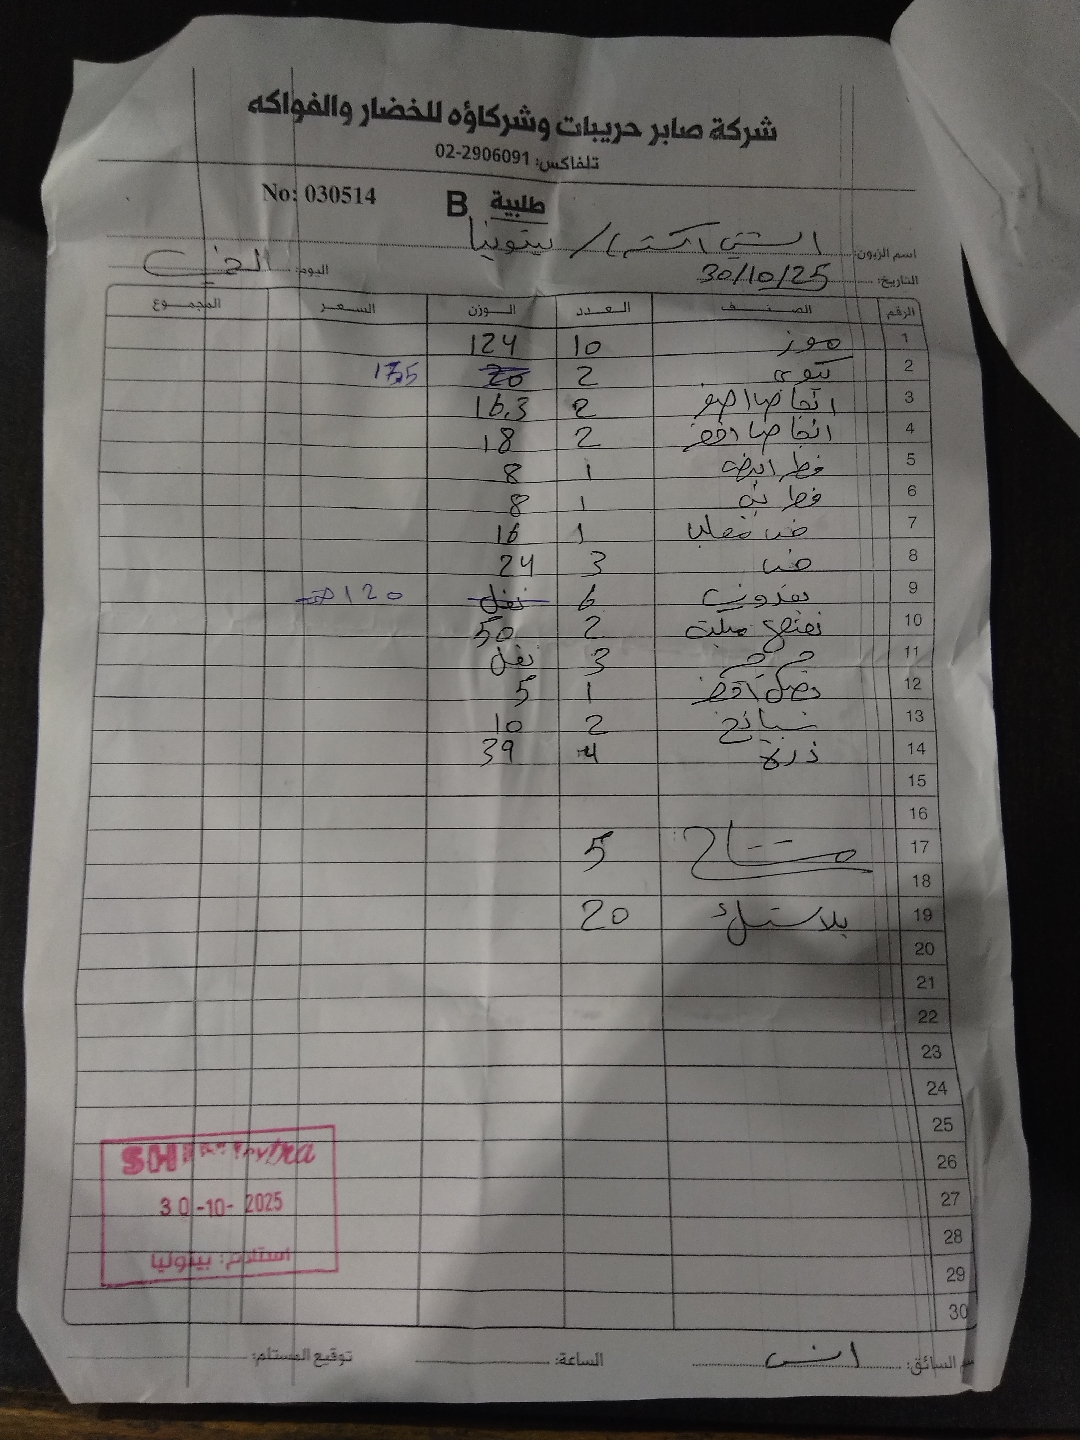 شركة صابر حريبات وشركاؤه للخضار والفواكه
تلفاكس: 02-2906091
No: 030514 B طلبية
اسم الزبون: الشني اكسترا / بيتونيا
التاريخ: 30/10/25 اليوم:
الرقم الصنف العدد الوزن السعر المجموع
1 موز 10 124
2 كيوي 2 20 17.5
3 انجاص اصفر 2 16.3
4 انجاص اخضر 2 18
5 فطر ابيض 1 8
6 فطر بني 1 8
7 1 16
8 3 24
9 بقدونس 6 نفل 120
10 2 50
11 جرجير 3 نفل
12 بصل اخضر 1 5
13 سبانخ 2 10
14 ذرة 4 39
15
16
17 مشتاح 5
18
19 بلاستك 20
20
21
22
23
24
25
26
27
28
29
30
30-10-2025
استلام: بيتونيا
السائق: انس الساعة: توقيع المستلم: